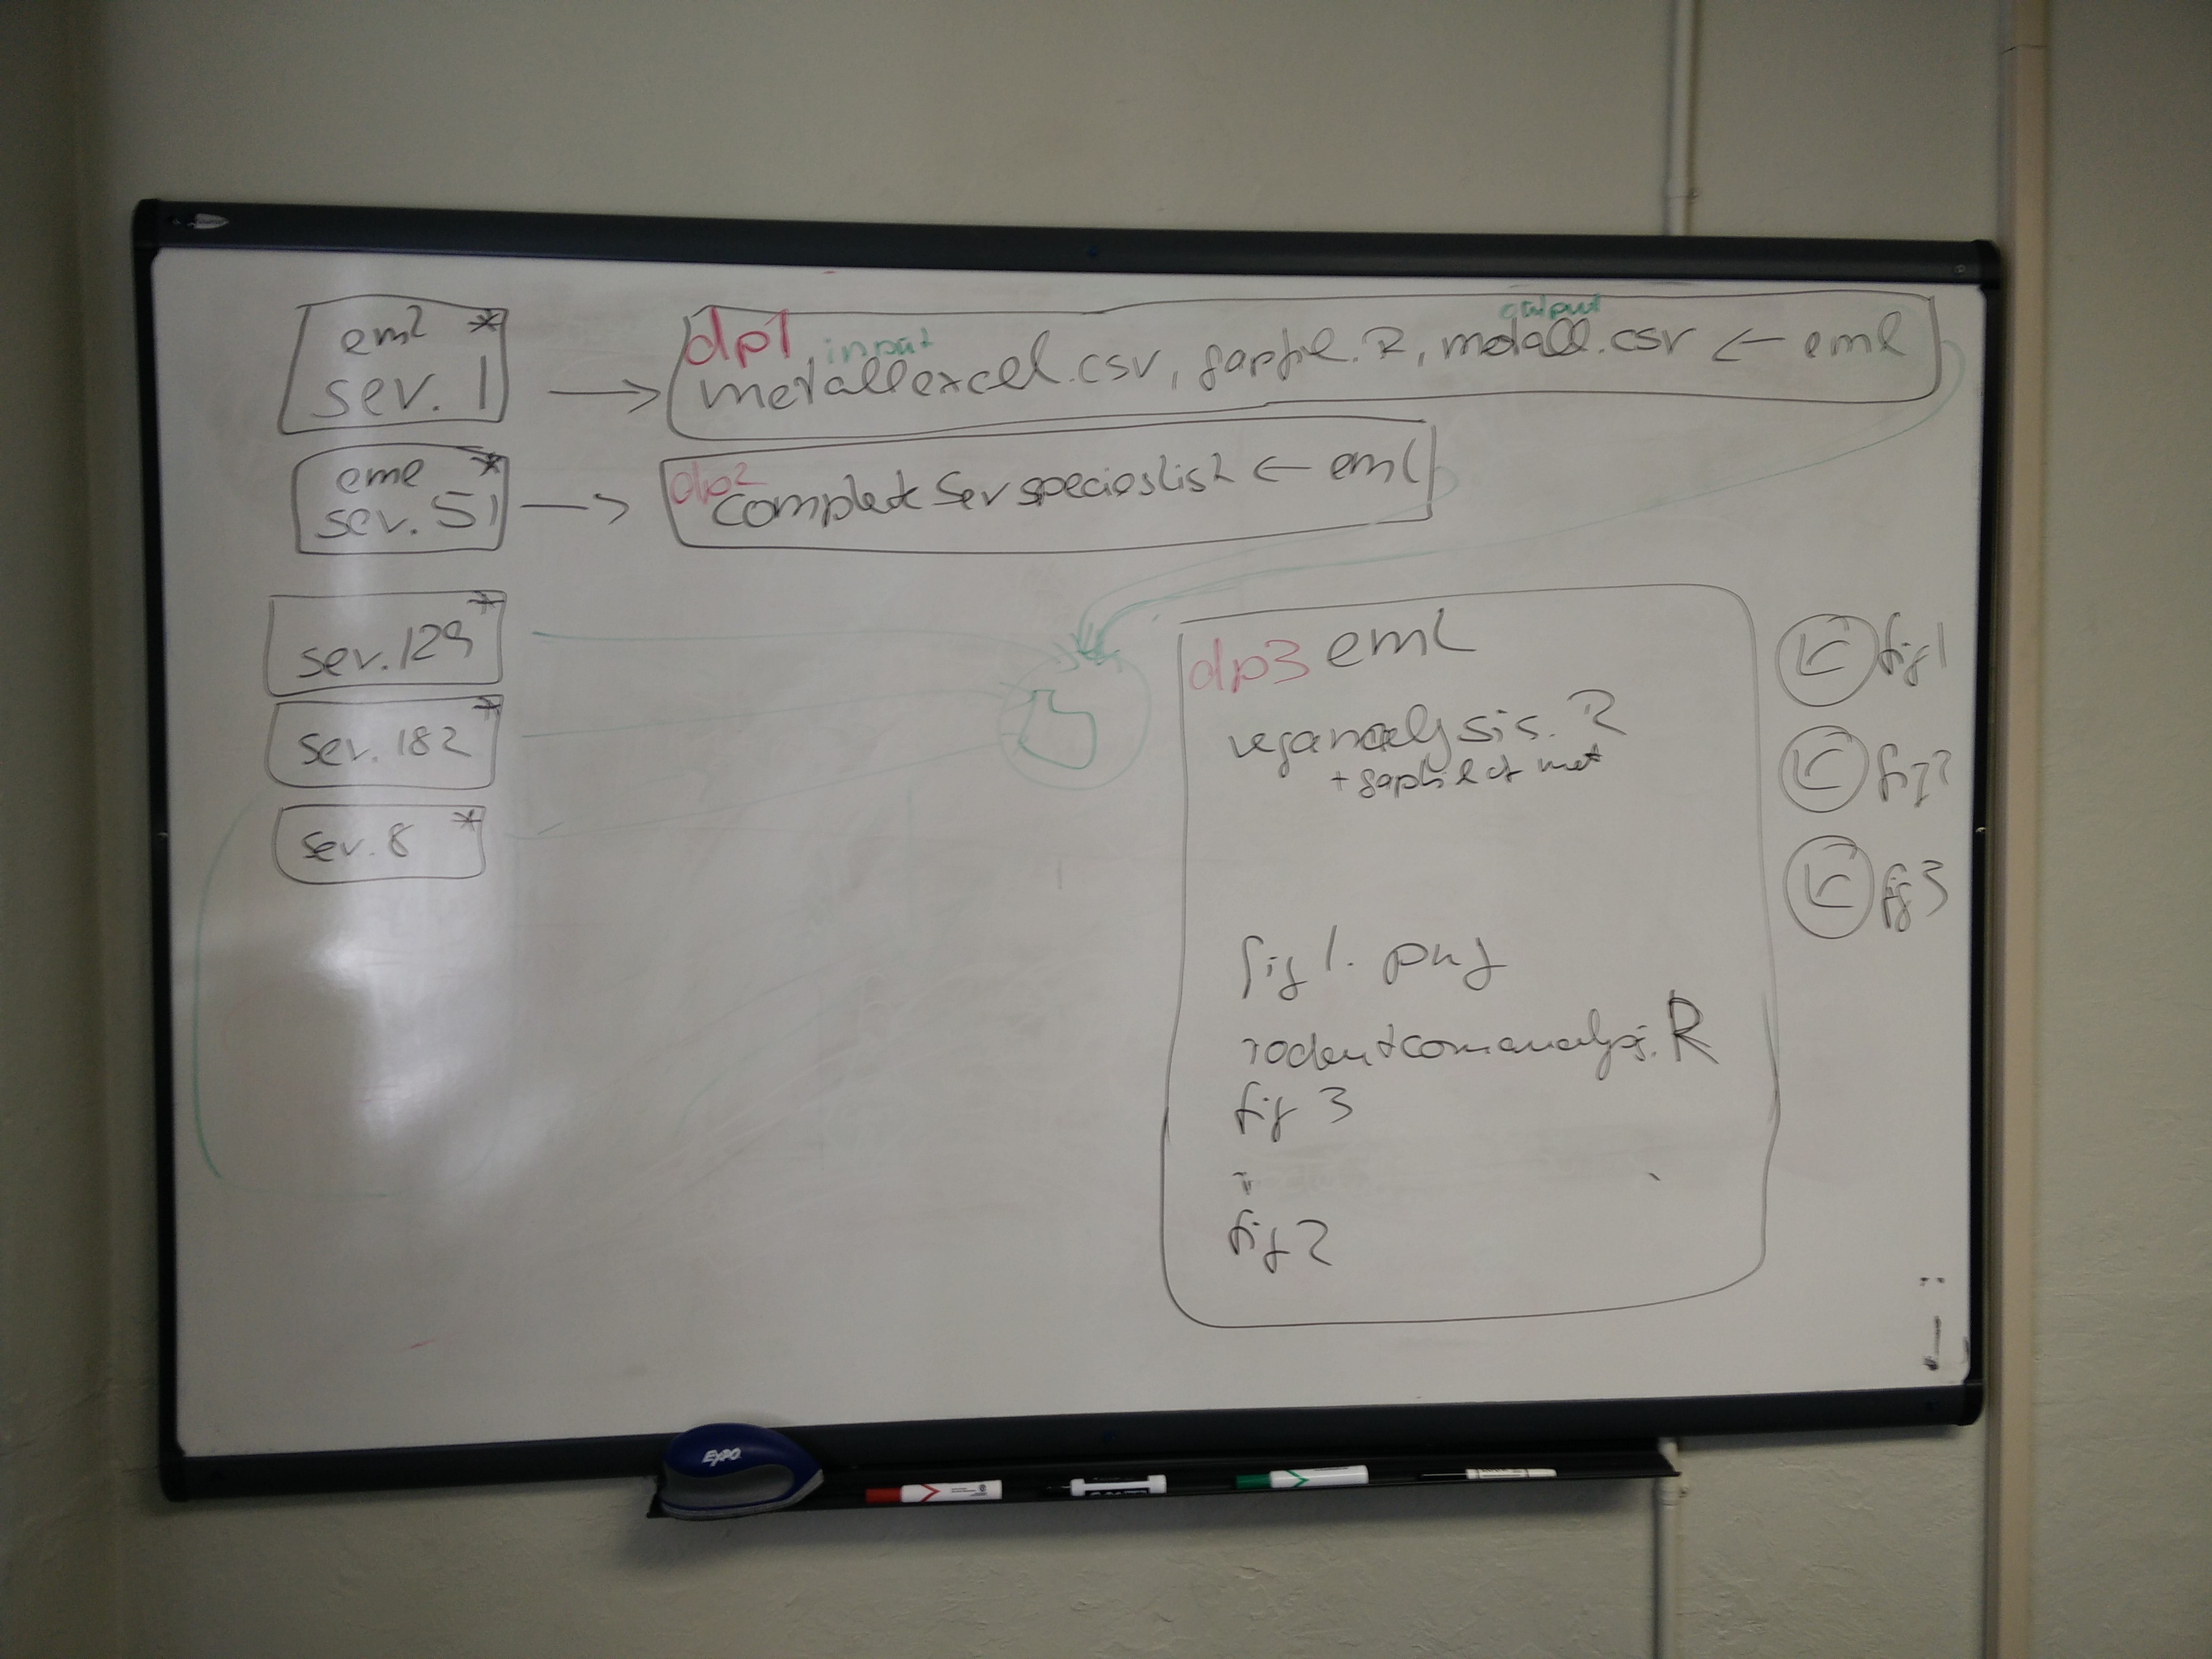 eml *
sev. 1
dp1 input output
metallexcel.csv, gapfil.R, metall.csv ← eml
eml *
sev. 51
dp2
complete Sev specieslist ← eml
sev. 129 *
sev. 182 *
sev. 8 *
dp3 eml
veganalysis.R
+ gapfil of met
fig 1. png
rodentcomanalysis.R
fig 3
fig 2
fig 1
fig 2
fig 3
EXPO